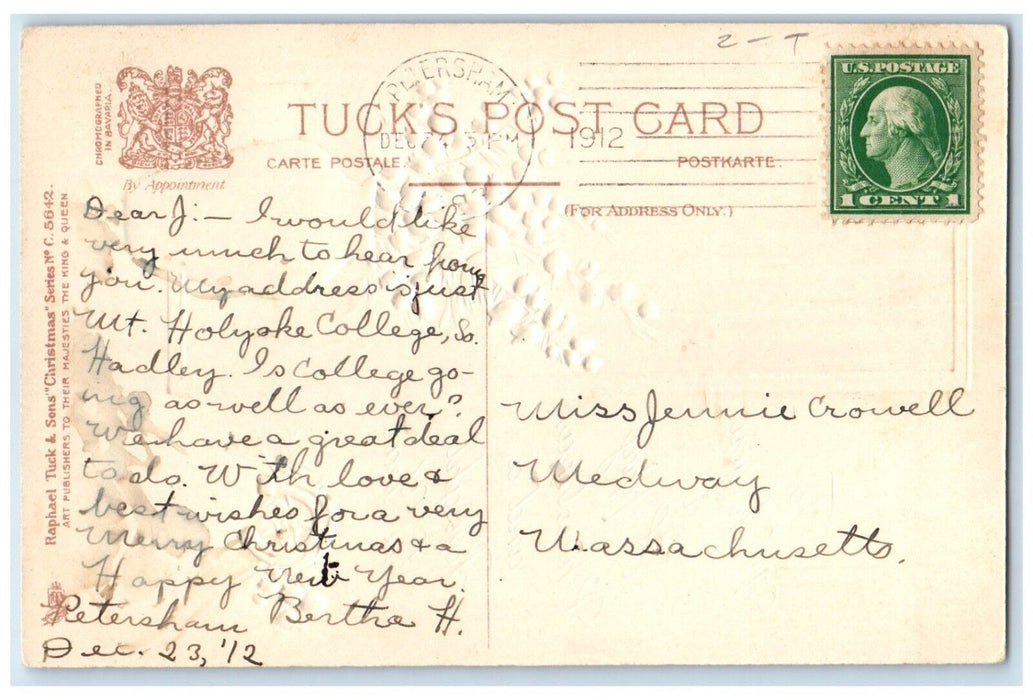 2 - T
CHROMOGRAPHED
IN BAVARIA
By Appointment
TUCK'S POST CARD
CARTE POSTALE.
POSTKARTE.
(FOR ADDRESS ONLY.)
PETERSHAM.
DEC 24
1912
U.S. POSTAGE
1 CENT 1
Raphael Tuck & Sons' "Christmas" Series Nº C. 5642.
ART PUBLISHERS TO THEIR MAJESTIES THE KING & QUEEN
Dear J:— I would like
very much to hear from
you. My address is just
Mt. Holyoke College, So.
Hadley. Is College go-
ing as well as ever?
We have a great deal
to do. With love &
best wishes for a very
Merry Christmas & a
Happy New Year.
Bertha H.
Petersham
Dec. 23, '12
Miss Jennie Crowell
Medway
Massachusetts.